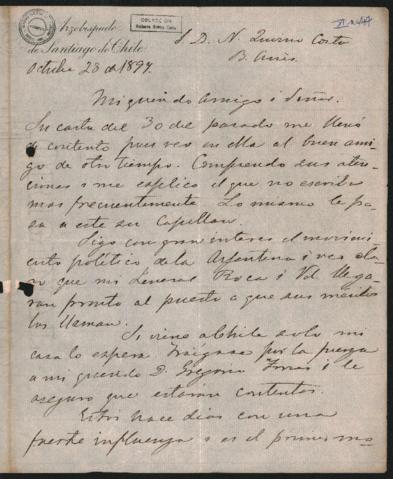 Arzobispado
de Santiago de Chile
S. D. N. Quirno Costa
B. Aires.
Octubre 28 de 1897.
Mi querido Amigo i Señor.
Su carta del 30 del pasado me llenó
de contento pues veo en ella al buen ami-
go de otro tiempo. Comprendo sus aten-
ciones i me esplico el que no escriba
mas frecuentemente. Lo mismo le pa-
sa a este su Capellan.
Sigo con gran interes el movimi-
ento politico de la Arjentina i veo cla-
ro que mi General Roca i Vd. llega-
rán pronto al puesto a que sus méritos
los llaman.
Si viene a Chile solo mi
casa lo espera. Tráigase por la fuerza
a mi querido D. Gregorio Torres i le
aseguro que estarán contentos.
Estoi hace dias con una
fuerte influenza i es el primer mo-